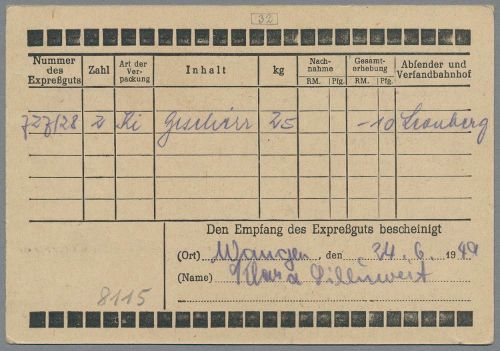 32
Nummer des Expreßguts Zahl Art der Verpackung Inhalt kg Nachnahme RM. Pfg. Gesamterhebung RM. Pfg. Absender und Versandbahnhof
727/28 2 Ki Geschirr 25 -10 Leonberg
Den Empfang des Expreßguts bescheinigt
(Ort) Wangen, den 24. 6. 1944
(Name) Klara
8115